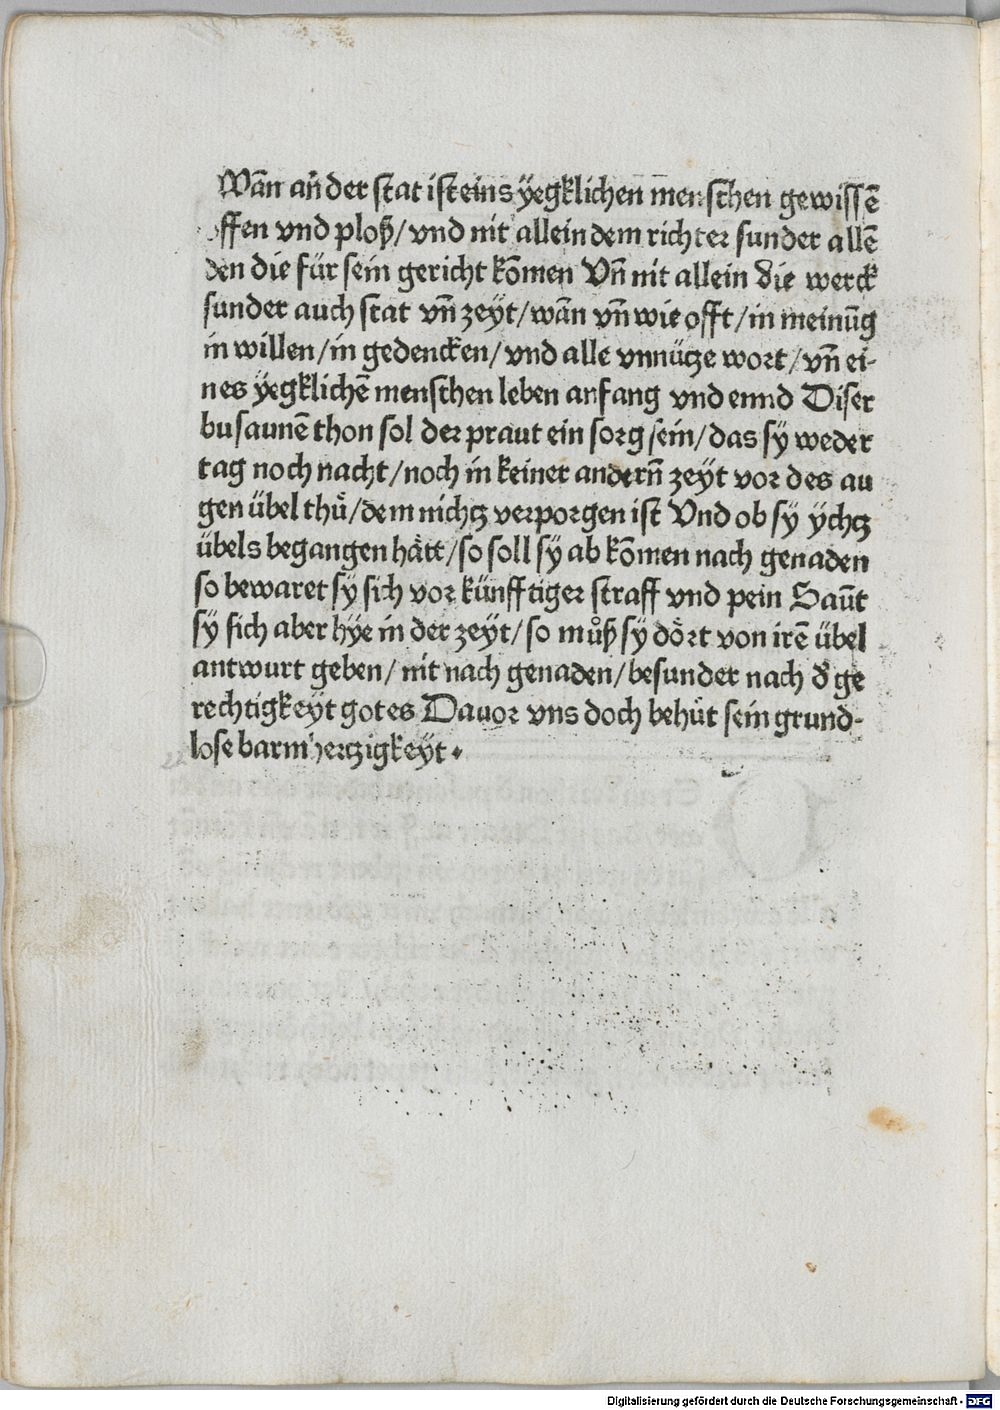 Wān an̄ der stat ist eins ÿegklichen menschen gewissē
offen vnd ploß/ vnd nit allein dem richter sunder allē
den die für sein gericht kōmen Vn̄ nit allein die werck
sunder auch stat vn̄ zeÿt/ wān vn̄ wie offt/ in meinūg
in willen/ in gedencken/ vnd alle vnnütze wort/ vn̄ ei-
nes ÿegklichē menschen leben anfang vnd ennd Diser
busaunē thon sol der praut ein sorg sein/ das sÿ weder
tag noch nacht/ noch in keiner andern̄ zeÿt vor des au
gen übel thuͤ/ dem nichtz verporgen ist Vnd ob sÿ ÿchtz
übels begangen haͤtt/ so soll sÿ ab kōmen nach genaden
so bewaret sÿ sich vor künfftiger straff vnd pein Saūt
sÿ sich aber hÿe in der zeÿt/ so muͦß sÿ doͤrt von irē übel
antwurt geben/ nit nach genaden/ besunder nach d̄ ge
rechtigkeÿt gotes Dauor vns doch behuͤt sein grund-
lose barmhertzigkeÿt.
Digitalisierung gefördert durch die Deutsche Forschungsgemeinschaft - DFG